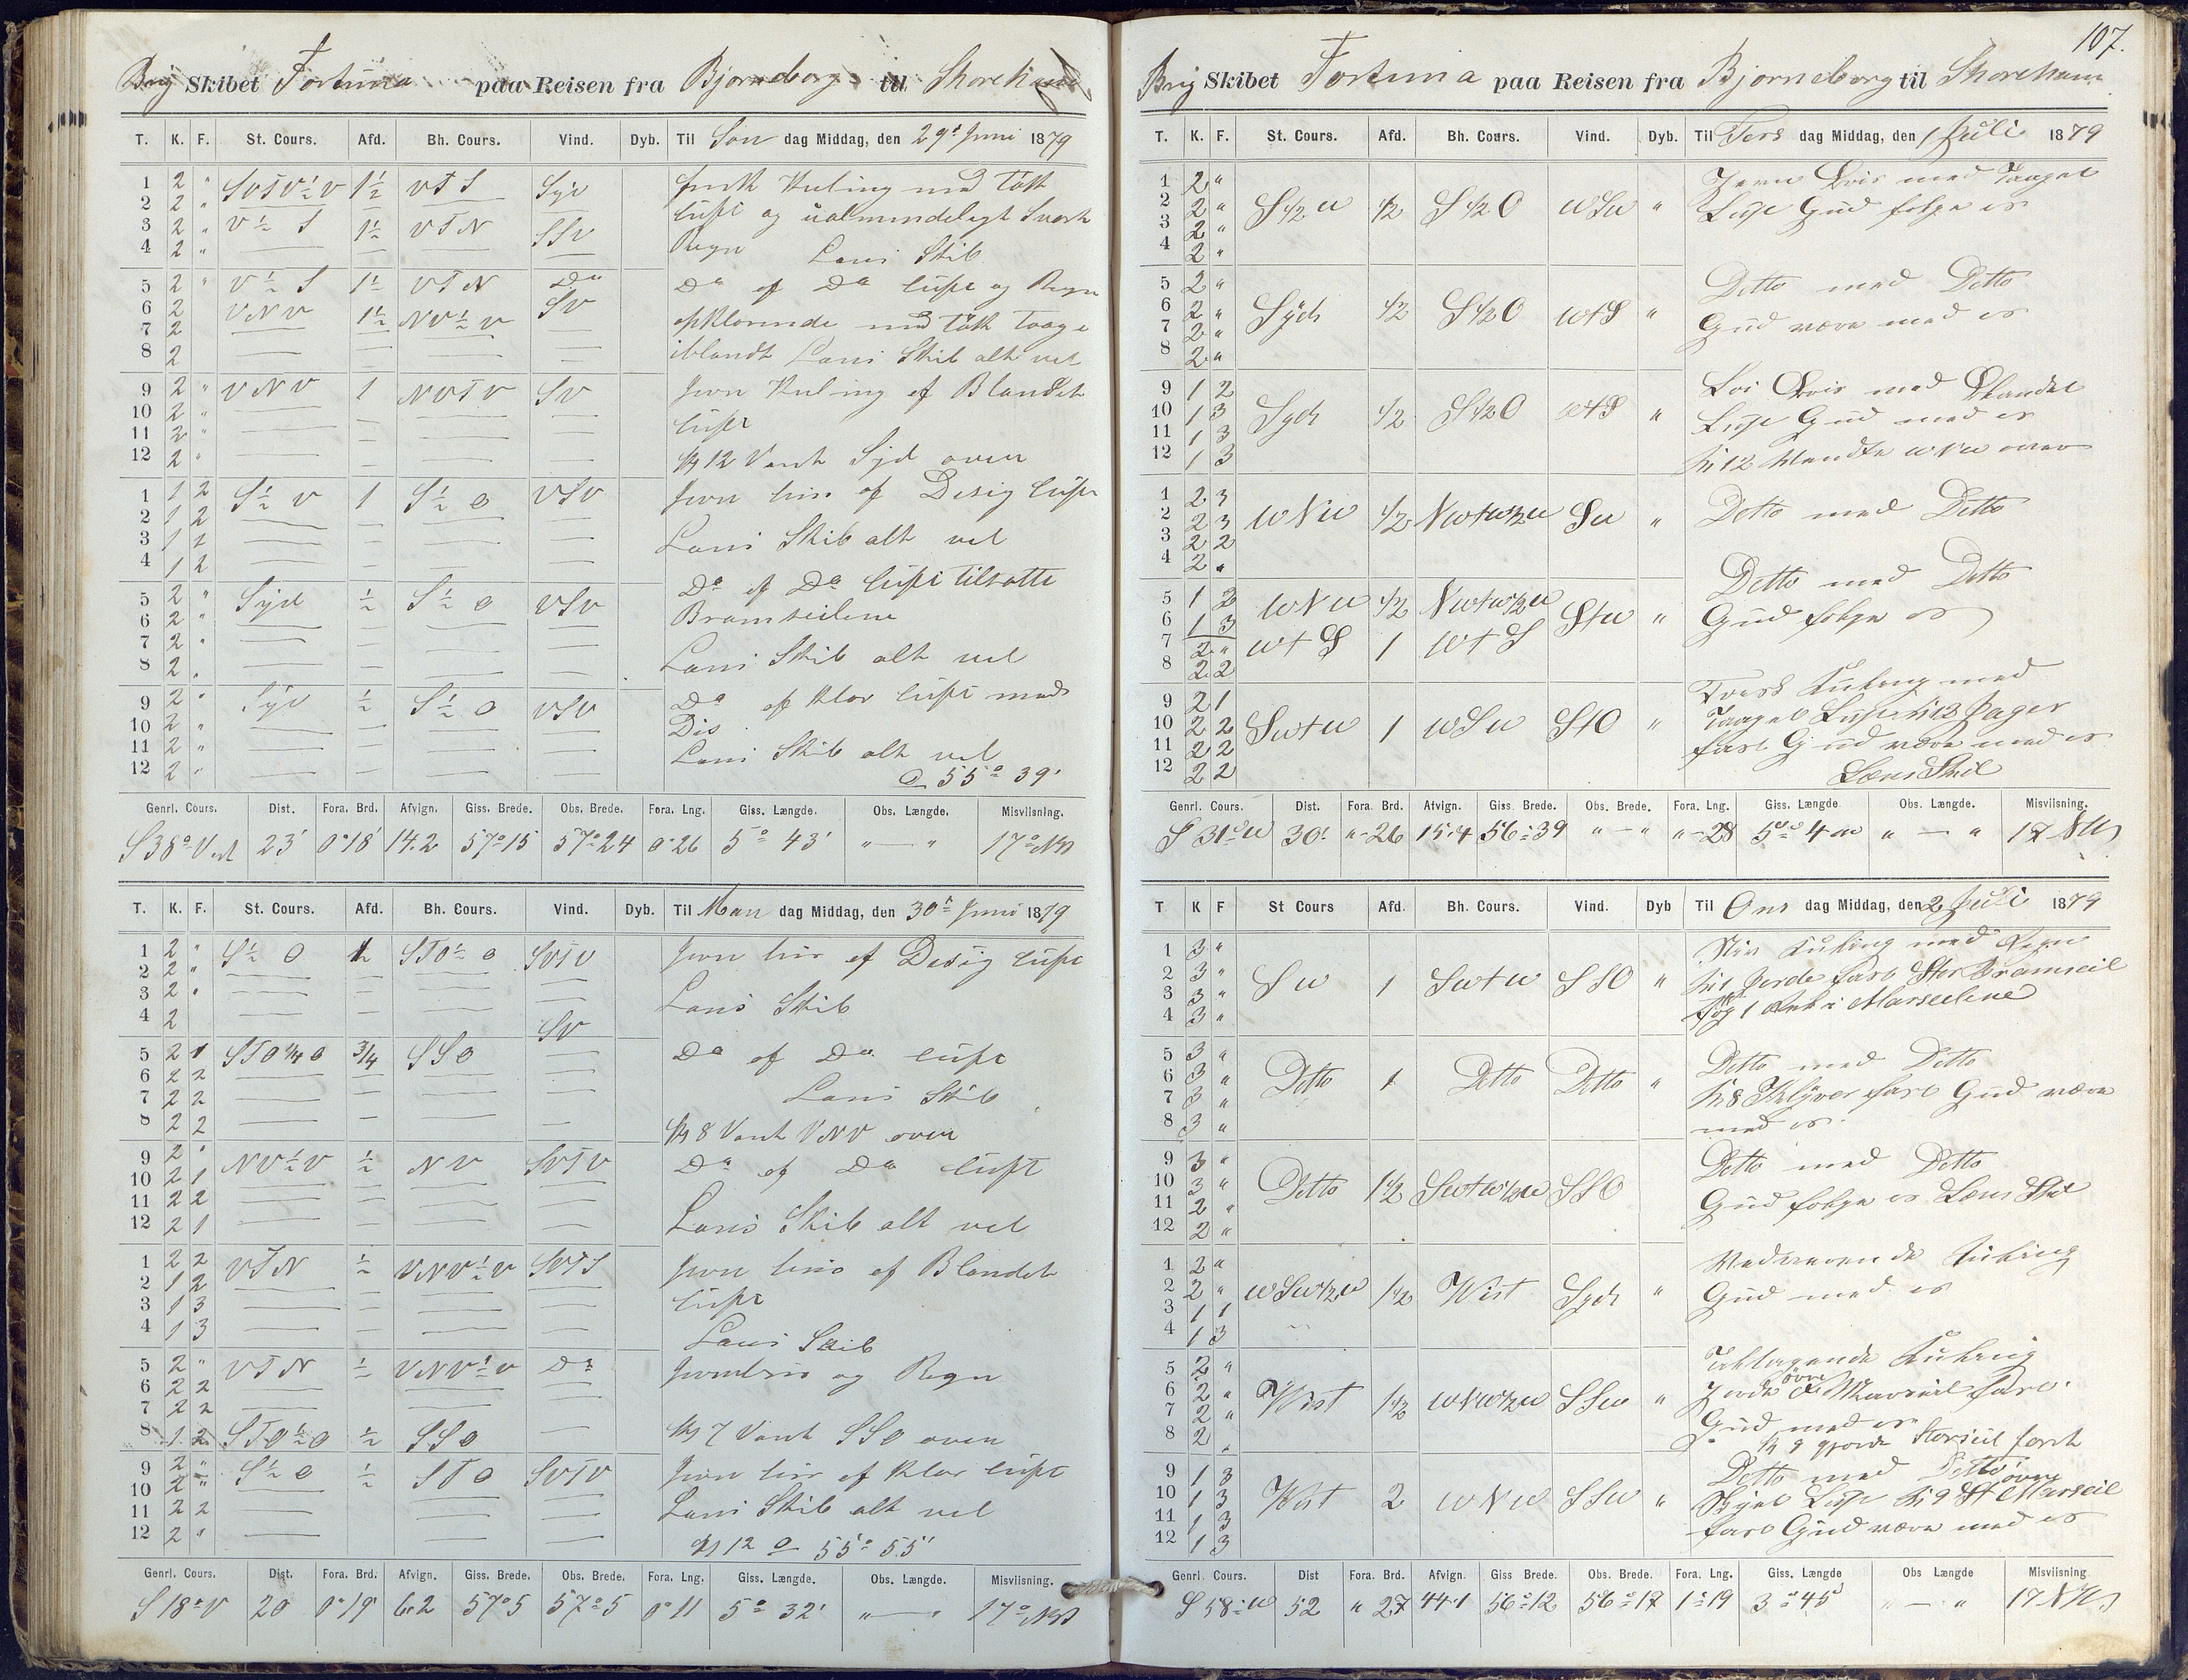 Brig Skibet Fortuna paa Reisen fra Bjorneborg til Shoreham
T. K. F. St. Cours. Afd. Bh. Cours. Vind. Dyb. Til Søn dag Middag, den 29t Juni 1879
1 2 " SVTV½V 1½ VTS Syd frisk Kuling med tøtk
2 2 " luft og ualmindeligt Svært
3 2 " V½S 1½ VTN SSV Regn Læns Skib
4 2 "
5 2 " V½S 1½ VTN Do Do og Do luft og Regn
6 2 VNV 1½ NV½V SV opklarende med tøtk Taage
7 2 iblandt Læns Skib alt vel
8 2
9 2 " VNV 1 NVTV SV Jevn Kuling og Blandet
10 2 " luft
11 2 "
12 2 " Kl 12 Vendt Syd over
1 1 2 S½V 1 S½O VSV Jevn bris og Disig luft
2 1 2
3 1 2 Læns Skib alt vel
4 1 2
5 2 " Syd ½ S½O VSV Do og Do luft tilsatte
6 2 " Bramseilene
7 2 "
8 2 " Læns Skib alt vel
9 2 " Syd ½ S½O VSV Do og klar luft med
10 2 " Dis
11 2 " Læns Skib alt vel
12 2 " 55° 39'
Genrl. Cours. Dist. Fora. Brd. Afvign. Giss. Brede. Obs. Brede. Fora. Lng. Giss. Længde. Obs. Længde. Misviisning.
S38°Vest 23' 0°18' 14.2 57°15 57°24 0°26 5° 43' " — " 17° NV
T. K. F. St. Cours. Afd. Bh. Cours. Vind. Dyb. Til Man dag Middag, den 30t Juni 1879
1 2 " S½O ½ STO½O SVTV Jevn bris og Disig luft
2 2 "
3 2 " Læns Skib
4 2 SV
5 2 1 STO¼O ¾ SSO Do og Do luft
6 2 2
7 2 2 Læns Skib
8 2 2 Kl 8 Vendt VNV over
9 2 " NV½V ½ NV SVTV Do og Do luft
10 2 1
11 2 2
12 2 1 Læns Skib alt vel
1 2 2 VTN ½ VNV½V SVTS Jevn bris og Blandet
2 1 2 luft
3 1 3
4 1 3 Læns Skib
5 2 " VTN ½ VNV½V Do Jevnbris og Regn
6 2 2
7 2 2
8 1 2 STO½O ½ SSO Kl 7 Vendt SSO over
9 2 " S½O ½ STO SVTV Jevn bris og klar luft
10 2 "
11 2 2 Læns Skib alt vel
12 2 " Kl 12 55° 55'
Genrl. Cours. Dist. Fora. Brd. Afvign. Giss. Brede. Obs. Brede. Fora. Lng. Giss. Længde. Obs. Længde. Misviisning.
S18°V 20 0°19' 6.2 57°5 57°5 0°11 5° 32' " — " 17° NV
107.
Brig Skibet Fortuna paa Reisen fra Bjorneborg til Shoreham
T. K. F. St. Cours. Afd. Bh. Cours. Vind. Dyb. Til Tirs dag Middag, den 1 Juli 1879
1 2 " Jevn Bris med Taaget
2 2 " S½W ½ S½O WSW " Luft Gud følge os
3 2 "
4 2 "
5 2 " Detto med Detto
6 2 " Syd ½ S½O WtS " Gud være med os
7 2 "
8 2 "
9 1 2 Bris med Blandet
10 1 3 Syd ½ S½O WtS " Luft Gud med os
11 1 3
12 1 3 Kl 12 Vendte WNW over
1 2 3
2 2 3 WNW ½ NWtW½W SW " Detto med Detto
3 2 2
4 2 "
5 1 2 WNW ½ NWtW½W StW " Detto med Detto
6 1 3 Gud følge os
7 2 " WtS 1 WtS
8 2 2
9 2 1 Frisk Kuling med
10 2 2 SWtW 1 WSW StO " Taaget Luft Kl 3 Jager
11 2 2 fast Gud være med os
12 2 2 Læns Skib
Genrl. Cours. Dist. Fora. Brd. Afvign. Giss. Brede. Obs. Brede. Fora. Lng. Giss. Længde Obs. Længde. Misviisning.
S 31°W 30' "-26 15.4 56°39 " — " "-28 5° 4 " — " 17 NW
T K F St Cours Afd. Bh. Cours. Vind. Dyb Til Ons dag Middag, den 2 Juli 1879
1 3 " Stiv Kuling med Regn
2 3 " SW 1 SWtW SSO " Kl 1 Fast Stor Bramseil
3 3 " og 1 Reb i Marseilene
4 3 "
5 3 " Detto med Detto
6 3 " Detto 1 Detto Detto " Kl 8 Klyver fast Gud være
7 3 " med os.
8 3 "
9 3 " Detto med Detto
10 3 " Detto 1½ SWtW½W SSO Gud følge os Læns Skib
11 2 "
12 2 "
1 2 " Vedvarende Kuling
2 2 " WSW½W 1½ West Syd " Gud med os
3 1 1
4 1 3
5 2 " Kuling
6 2 " West 1½ WNW½W SSW " øvre Marseil fast.
7 2 " Gud med os
8 2 " Kl 9 gjorde Storseil fast
9 1 3 Detto med Detto
10 1 3 West 2 WNW SSW " Luft Kl 9 St øvre Marseil
11 1 3 fast Gud være med os
12 1 3
Genrl Cours. Dist Fora. Brd. Afvign. Giss Brede. Obs. Brede. Fora. Lng. Giss. Længde Obs Længde Misviisning
S 58°W 52 " 27 44.1 56°12 56°17 1°19 3°45 " — " 17 NW